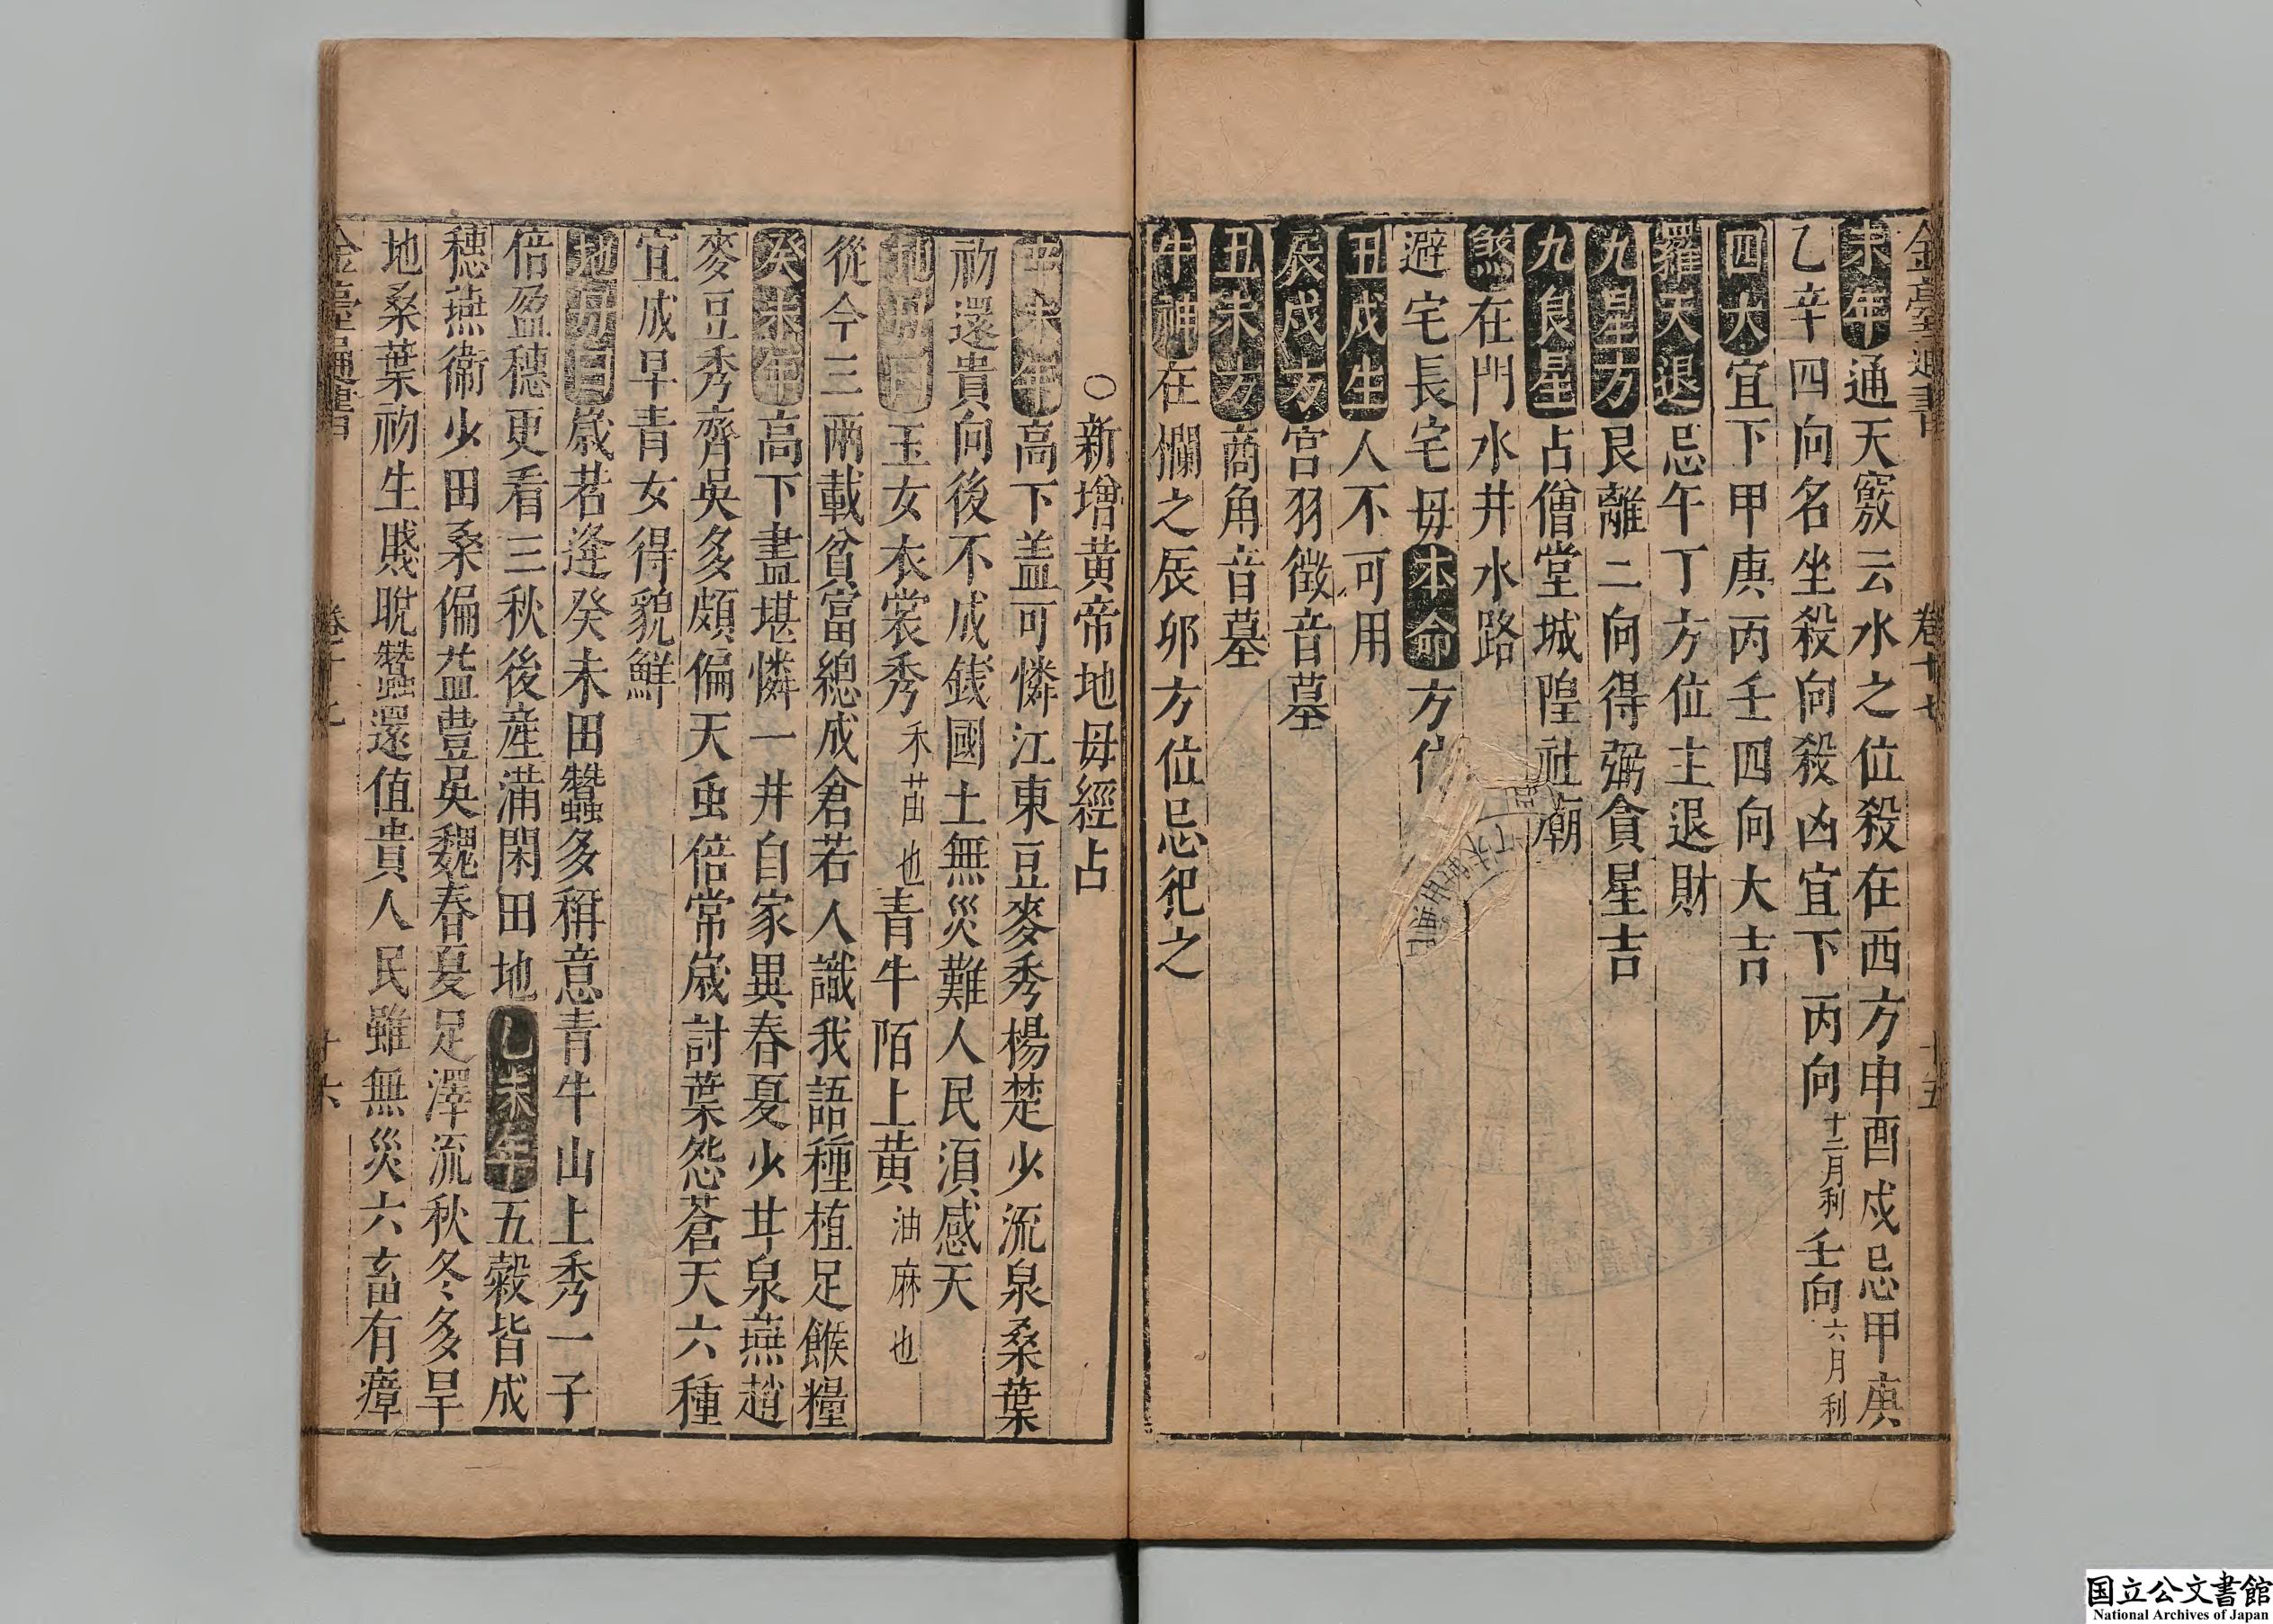 金臺通書 卷十七 十五
未年通天竅云水之位殺在西方申酉戌忌甲庚
乙辛四向名坐殺向殺凶宜下丙向十二月利壬向六月利
四大宜下甲庚丙壬四向大吉
羅天退忌午丁方位主退財
九星方艮離二向得弼貪星吉
九良星占僧堂城隍社廟
煞在門水井水路
避宅長宅毋本命方位
丑戌生人不可用
辰戌方宫羽徵音墓
丑未方商角音墓
牛神在欄之辰卯方位忌犯之
〇新增黄帝地毋經占
辛未年高下盖可憐江東豆麥秀楊楚少流泉桑葉
初還貴向後不成銭國土無災難人民湏感天
地毋曰玉女衣裳秀禾苗也青牛陌上黄油麻也
從今三兩載貧富總成倉若人識我語種植足餱糧
癸未年高下盡堪憐一井自家異春夏少井泉燕趙
麥豆秀齊吳多頗偏天虫倍常歲討葉怨蒼天六種
宜成早青女得貌鮮
地毋曰歲若逢癸未田蠶多稱意青牛山上秀一子
倍盈穗更看三秋後産滿閑田地乙未年五穀皆成
穗燕衛少田桑偏益豊吳魏春夏足澤流秋冬多旱
地桑葉初生賤晩蠶還值貴人民雖無災六畜有瘴
金臺通書 卷十七 十六
国立公文書館
National Archives of Japan